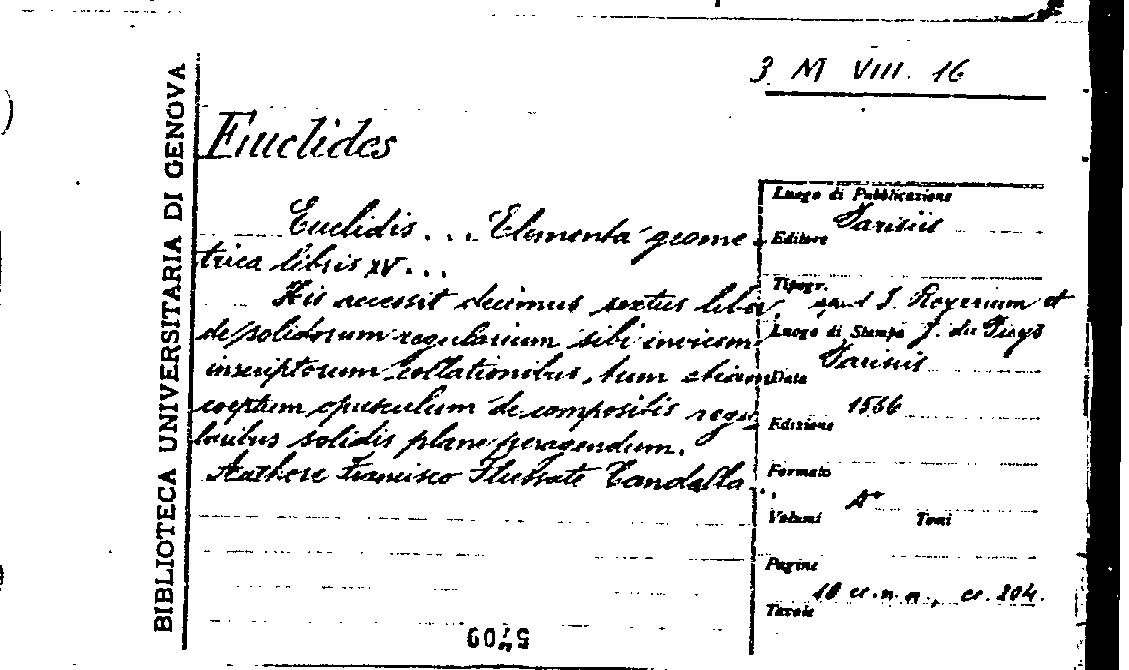 3 M VIII. 16
BIBLIOTECA UNIVERSITARIA DI GENOVA
Euclides
Euclidis ... Elementa geome-
trica libris XV...
His accessit decimus sextus liber,
de solidorum regularium sibi invicem
inscriptorum collationibus, tum etiam
coeptum opusculum de compositis regu-
laribus solidis plane peragendum.
Authore Francisco Flussate Candalla...
Luogo di Pubblicazione
Parisiis
Editore
Tipogr.
apud J. Royerium et
Luogo di Stampa J. du Puys
Parisiis
Data
1566
Edizione
Formato
4°
Volumi Tomi
Pagine
10 cc. n. n., cc. 204.
Tavole
5709